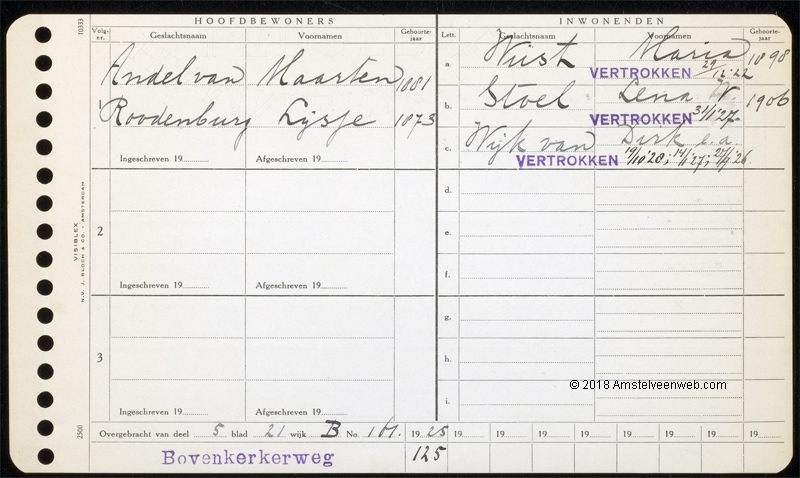 HOOFDBEWONERS
Volg-nr. Geslachtsnaam Voornamen Geboorte-jaar
Andel van Maarten 1881
Roodenburg Lijsje 1873
Ingeschreven 19 Afgeschreven 19
2
Ingeschreven 19 Afgeschreven 19
3
Ingeschreven 19 Afgeschreven 19
INWONENDEN
Lett. Geslachtsnaam Voornamen Geboorte-jaar
a. Wüst Maria 1898
VERTROKKEN 29/12'22
b. Stoel Lena W. 1906
VERTROKKEN 31/1'27
c. Wijk van Dirk e.a.
VERTROKKEN 19/10'28; 14/1'27; 27/1'26
d.
e.
f.
g.
h.
i.
© 2018 Amstelveenweb.com
Overgebracht van deel 5 blad 21 wijk B No. 161. 1925 19 19 19 19 19 19 19 19
Bovenkerkerweg 125
10333
VISIBLEX
N.V. J. BLOCH & CO. / AMSTERDAM
2500